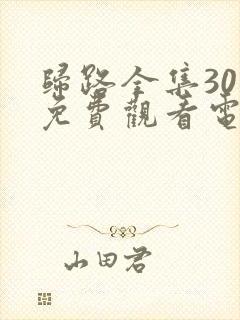 歸路全集30
免費觀看電
山田君